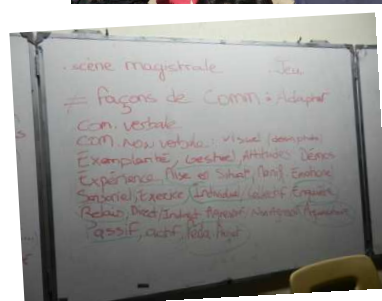 .scène magistrale .Jeu
≠ façons de Comm : Adapter
Com. verbale
Com. non verbale : visuel
Exemplarité, Gestuel, Attitude, Démo
Expérience, Mise en Situat°,
Sensoriel, Exercice, Individuel, Collectif, Enquête
Relais, Direct/Indirect
Passif, actif, Péda. Projet